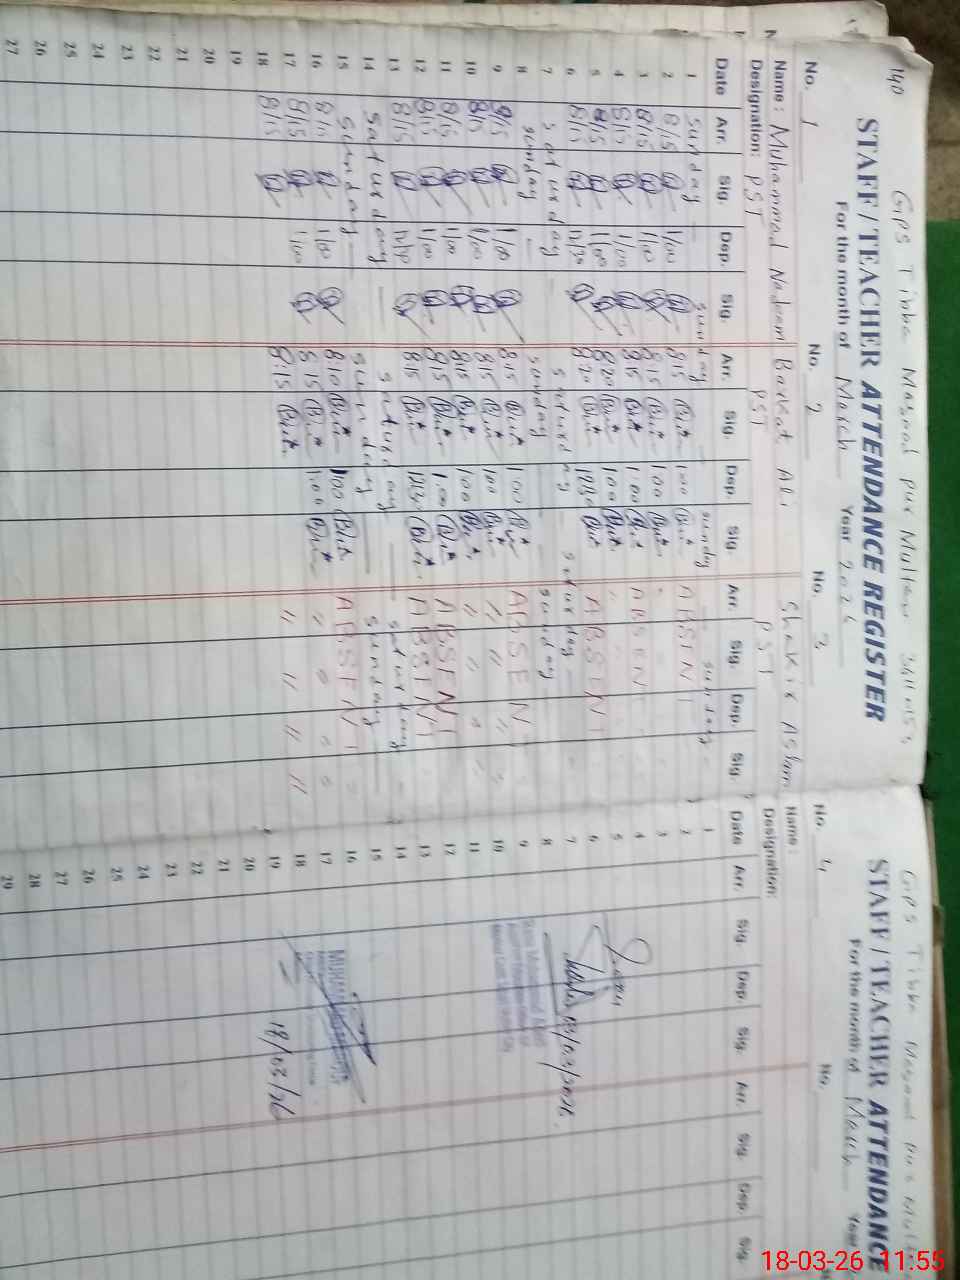 140
GPS Tibbe Masood pur Multan
STAFF / TEACHER ATTENDANCE REGISTER
For the month of March Year 2026
No. 1 No. 2 No. 3
Name: Muhammad Nadeem Barkat Ali Shakir Aslam
Designation: PST PST PST
Date Arr. Sig. Dep. Sig. Arr. Sig. Dep. Sig. Arr. Sig. Dep. Sig.
1 Sunday sunday sunday sunday sunday
2 8/15 1/00 8:15 1:00 ABSENT
3 8/15 1/00 8:15 1:00
4 8/15 1/00 8:15 1:00 ABSENT
5 8/15 1/00 8:20 1:00
6 8/15 12/30 8:20 12:30 ABSENT
7 Saturday Saturday Saturday
8 Sunday Sunday Sunday
9 8/15 1/00 8:15 1:00 ABSENT
10 8/15 1/00 8:15 1:00 " " " "
11 8/15 1/00 8:15 1:00 " " " "
12 8/15 1/00 8:15 1:00 ABSENT
13 8/15 12/30 8:15 12:30 ABSENT
14 Saturday Saturday Saturday
15 Sunday Sunday Sunday
16 8/15 1/00 8:10 1:00 ABSENT
17 8/15 1/00 8:15 1:00 " " " "
18 8/15 8:15 " " " "
19
20
21
22
23
24
25
26
27
GPS Tibbe Masood pur
STAFF / TEACHER ATTENDANCE
For the month of March Year
No. 4 No.
Name:
Designation:
Date Arr. Sig. Dep. Sig. Arr. Sig. Dep. Sig.
1
2
3
4
5
6
7
8
9
10
11
12
13
14
15
16
17
18
19
20
21
22
23
24
25
26
27
28
29
13/03/2026.
18/03/26
18-03-26 11:55